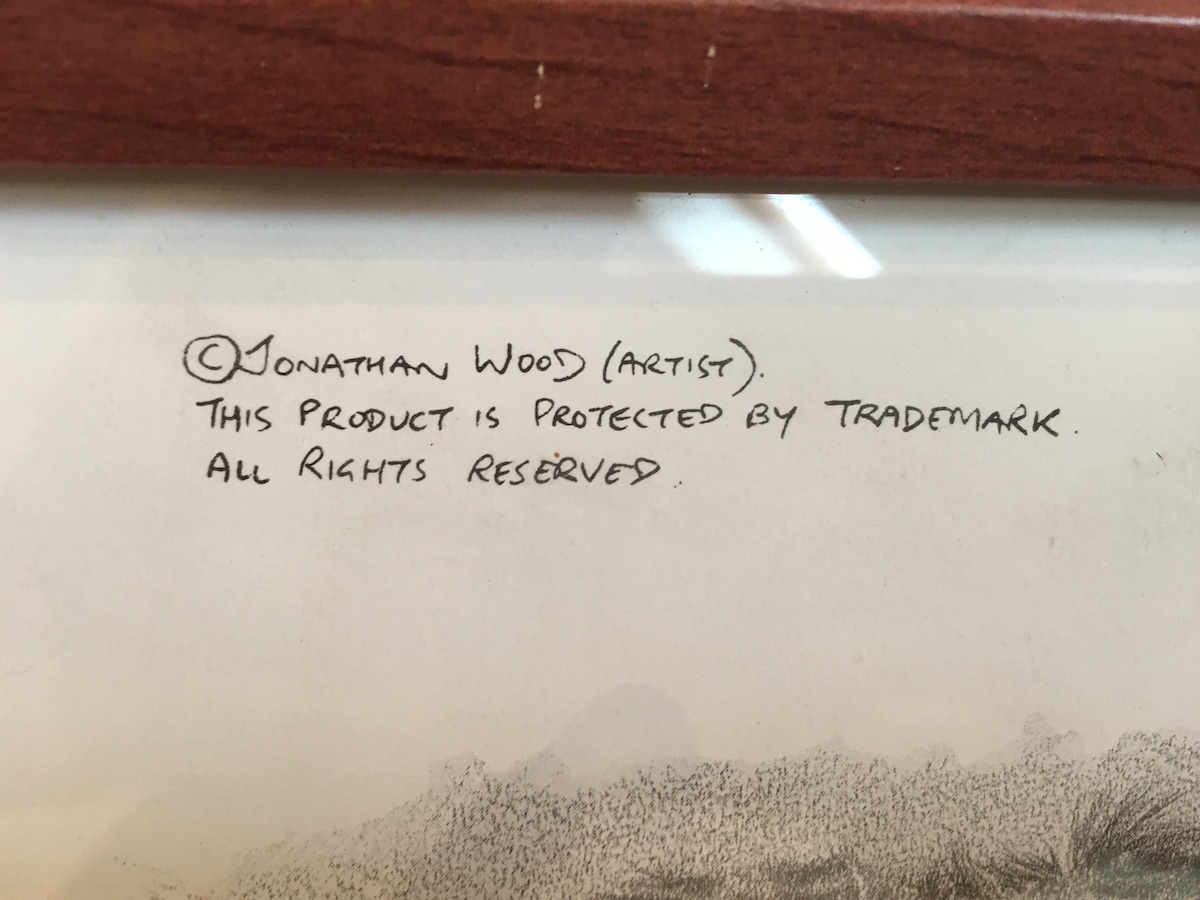 ©JONATHAN WOOD (ARTIST).
THIS PRODUCT IS PROTECTED BY TRADEMARK.
ALL RIGHTS RESERVED.